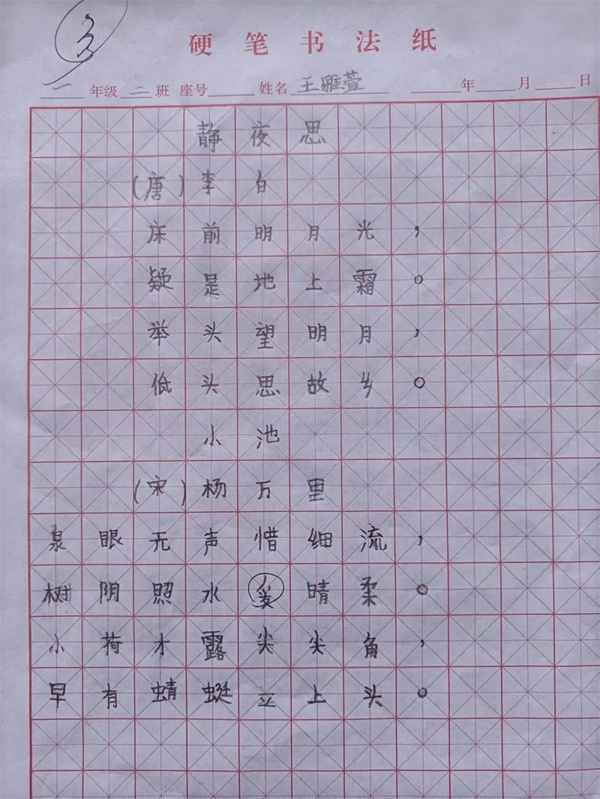 硬笔书法纸
一年级二班 座号 姓名 王雅萱 年 月 日
静夜思
(唐)李白
床前明月光，
疑是地上霜。
举头望明月，
低头思故乡。
小池
(宋)杨万里
泉眼无声惜细流，
树阴照水爱晴柔。
小荷才露尖尖角，
早有蜻蜓立上头。